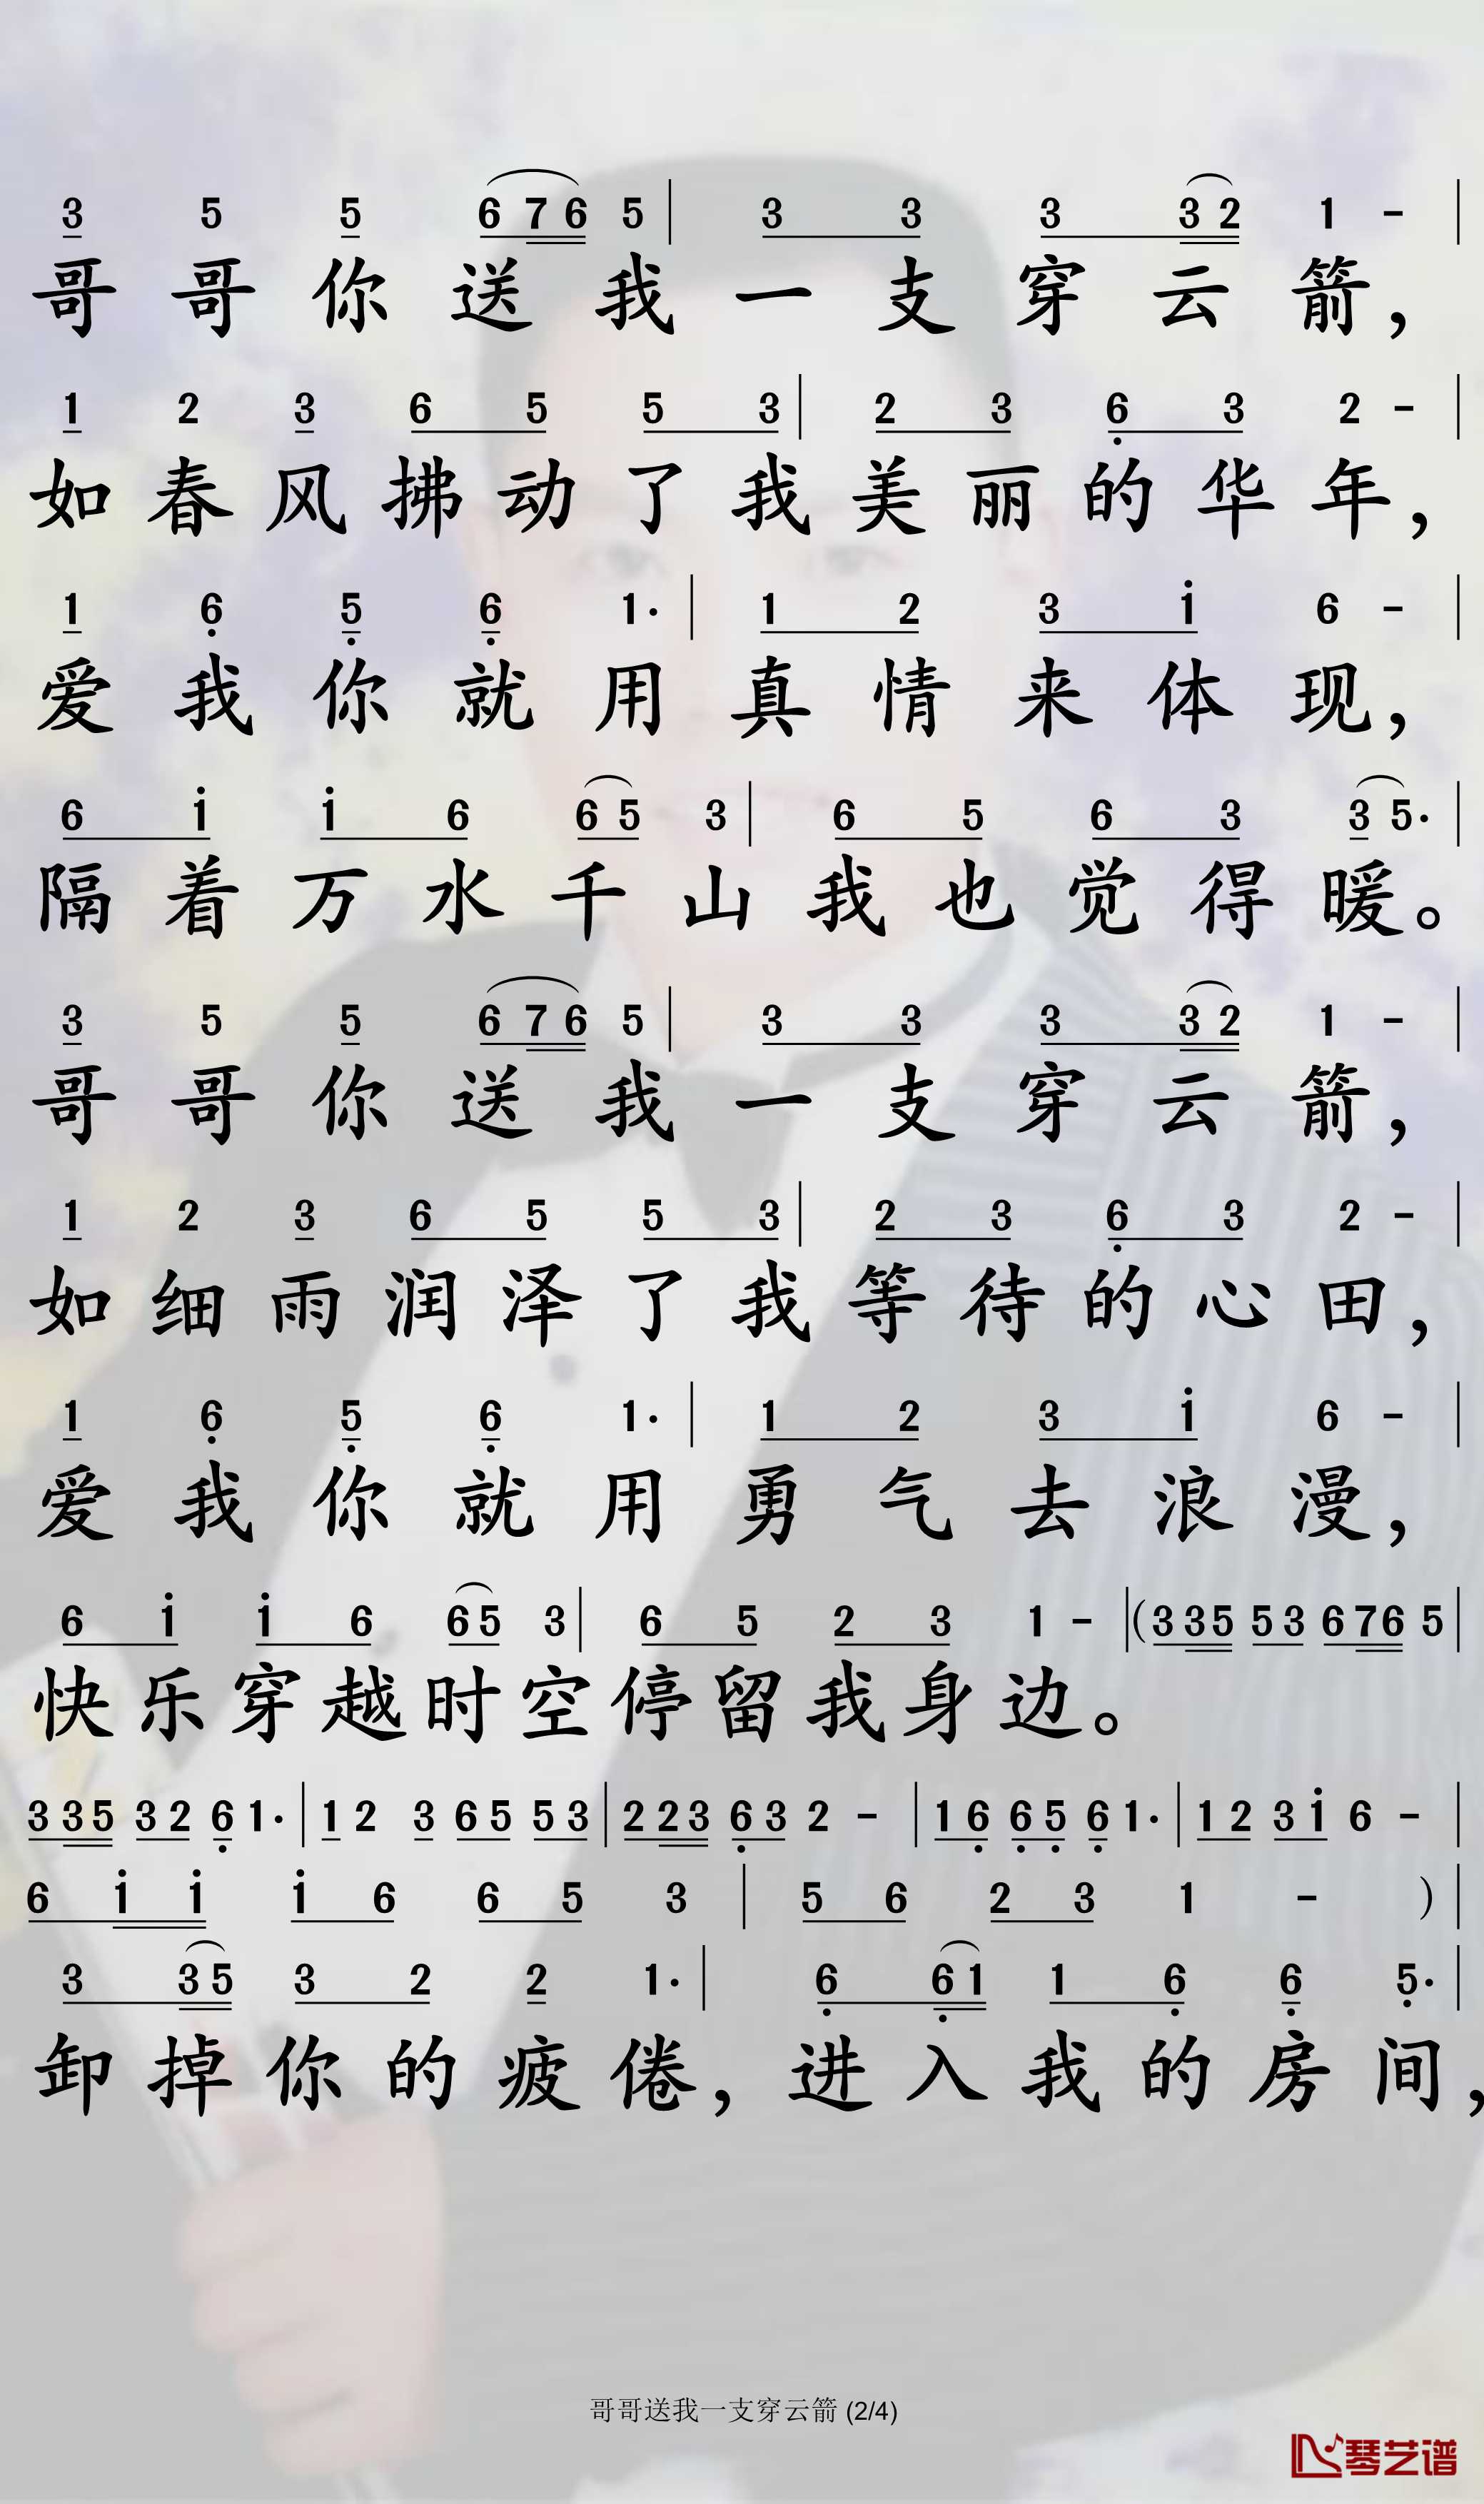 3 5 5 6 7 6 5 | 3 3 3 3 2 1 - |
哥哥你送我一支穿云箭，
1 2 3 6 5 5 3 | 2 3 6̣ 3 2 - |
如春风拂动了我美丽的华年，
1 6̣ 5̣ 6̣ 1· | 1 2 3 1̇ 6 - |
爱我你就用真情来体现，
6 1̇ 1̇ 6 6 5 3 | 6 5 6 3 3 5· |
隔着万水千山我也觉得暖。
3 5 5 6 7 6 5 | 3 3 3 3 2 1 - |
哥哥你送我一支穿云箭，
1 2 3 6 5 5 3 | 2 3 6̣ 3 2 - |
如细雨润泽了我等待的心田，
1 6̣ 5̣ 6̣ 1· | 1 2 3 1̇ 6 - |
爱我你就用勇气去浪漫，
6 1̇ 1̇ 6 6 5 3 | 6 5 2 3 1 - | (3 3 5 5 3 6 7 6 5 |
快乐穿越时空停留我身边。
3 3 5 3 2 6̣ 1· | 1 2 3 6 5 5 3 | 2 2 3 6̣ 3 2 - | 1 6̣ 6̣ 5̣ 6̣ 1· | 1 2 3 1̇ 6 - |
6 1̇ 1̇ 1̇ 6 6 5 3 | 5 6 2 3 1 - ) |
3 3 5 3 2 2 1· | 6̣ 6̣ 1 1 6̣ 6̣ 5̣· |
卸掉你的疲倦，进入我的房间，
哥哥送我一支穿云箭 (2/4)
琴艺谱